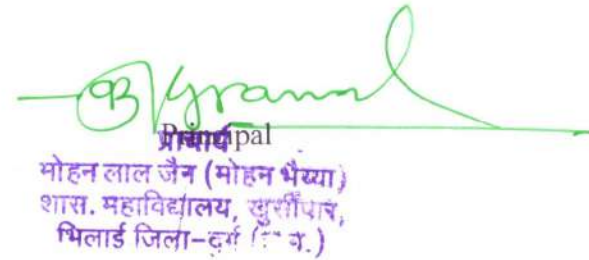 Principal
प्राचार्य
मोहन लाल जैन (मोहन भैय्या)
शास. महाविद्यालय, खुर्सीपार,
भिलाई जिला-दुर्ग